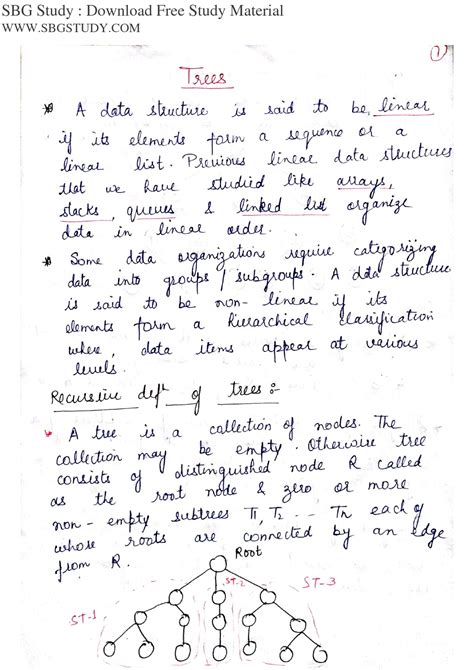 SBG Study : Download Free Study Material
WWW.SBGSTUDY.COM
1
Trees
A data structure is said to be linear
if its elements form a sequence or a
linear list. Previous linear data structures
that we have studied like arrays,
stacks, queues & linked list organize
data in linear order.
Some data organizations require categorizing
data into groups / subgroups. A data structure
is said to be non-linear if its
elements form a hierarchical classification
where, data items appear at various
levels.
Recursive defn of trees :-
A tree is a collection of nodes. The
collection may be empty. Otherwise tree
consists of distinguished node R called
as the root node & zero or more
non-empty subtrees T1, T2 .. Tn each of
whose roots are connected by an edge
from R.
Root
ST-1
ST-2
ST-3